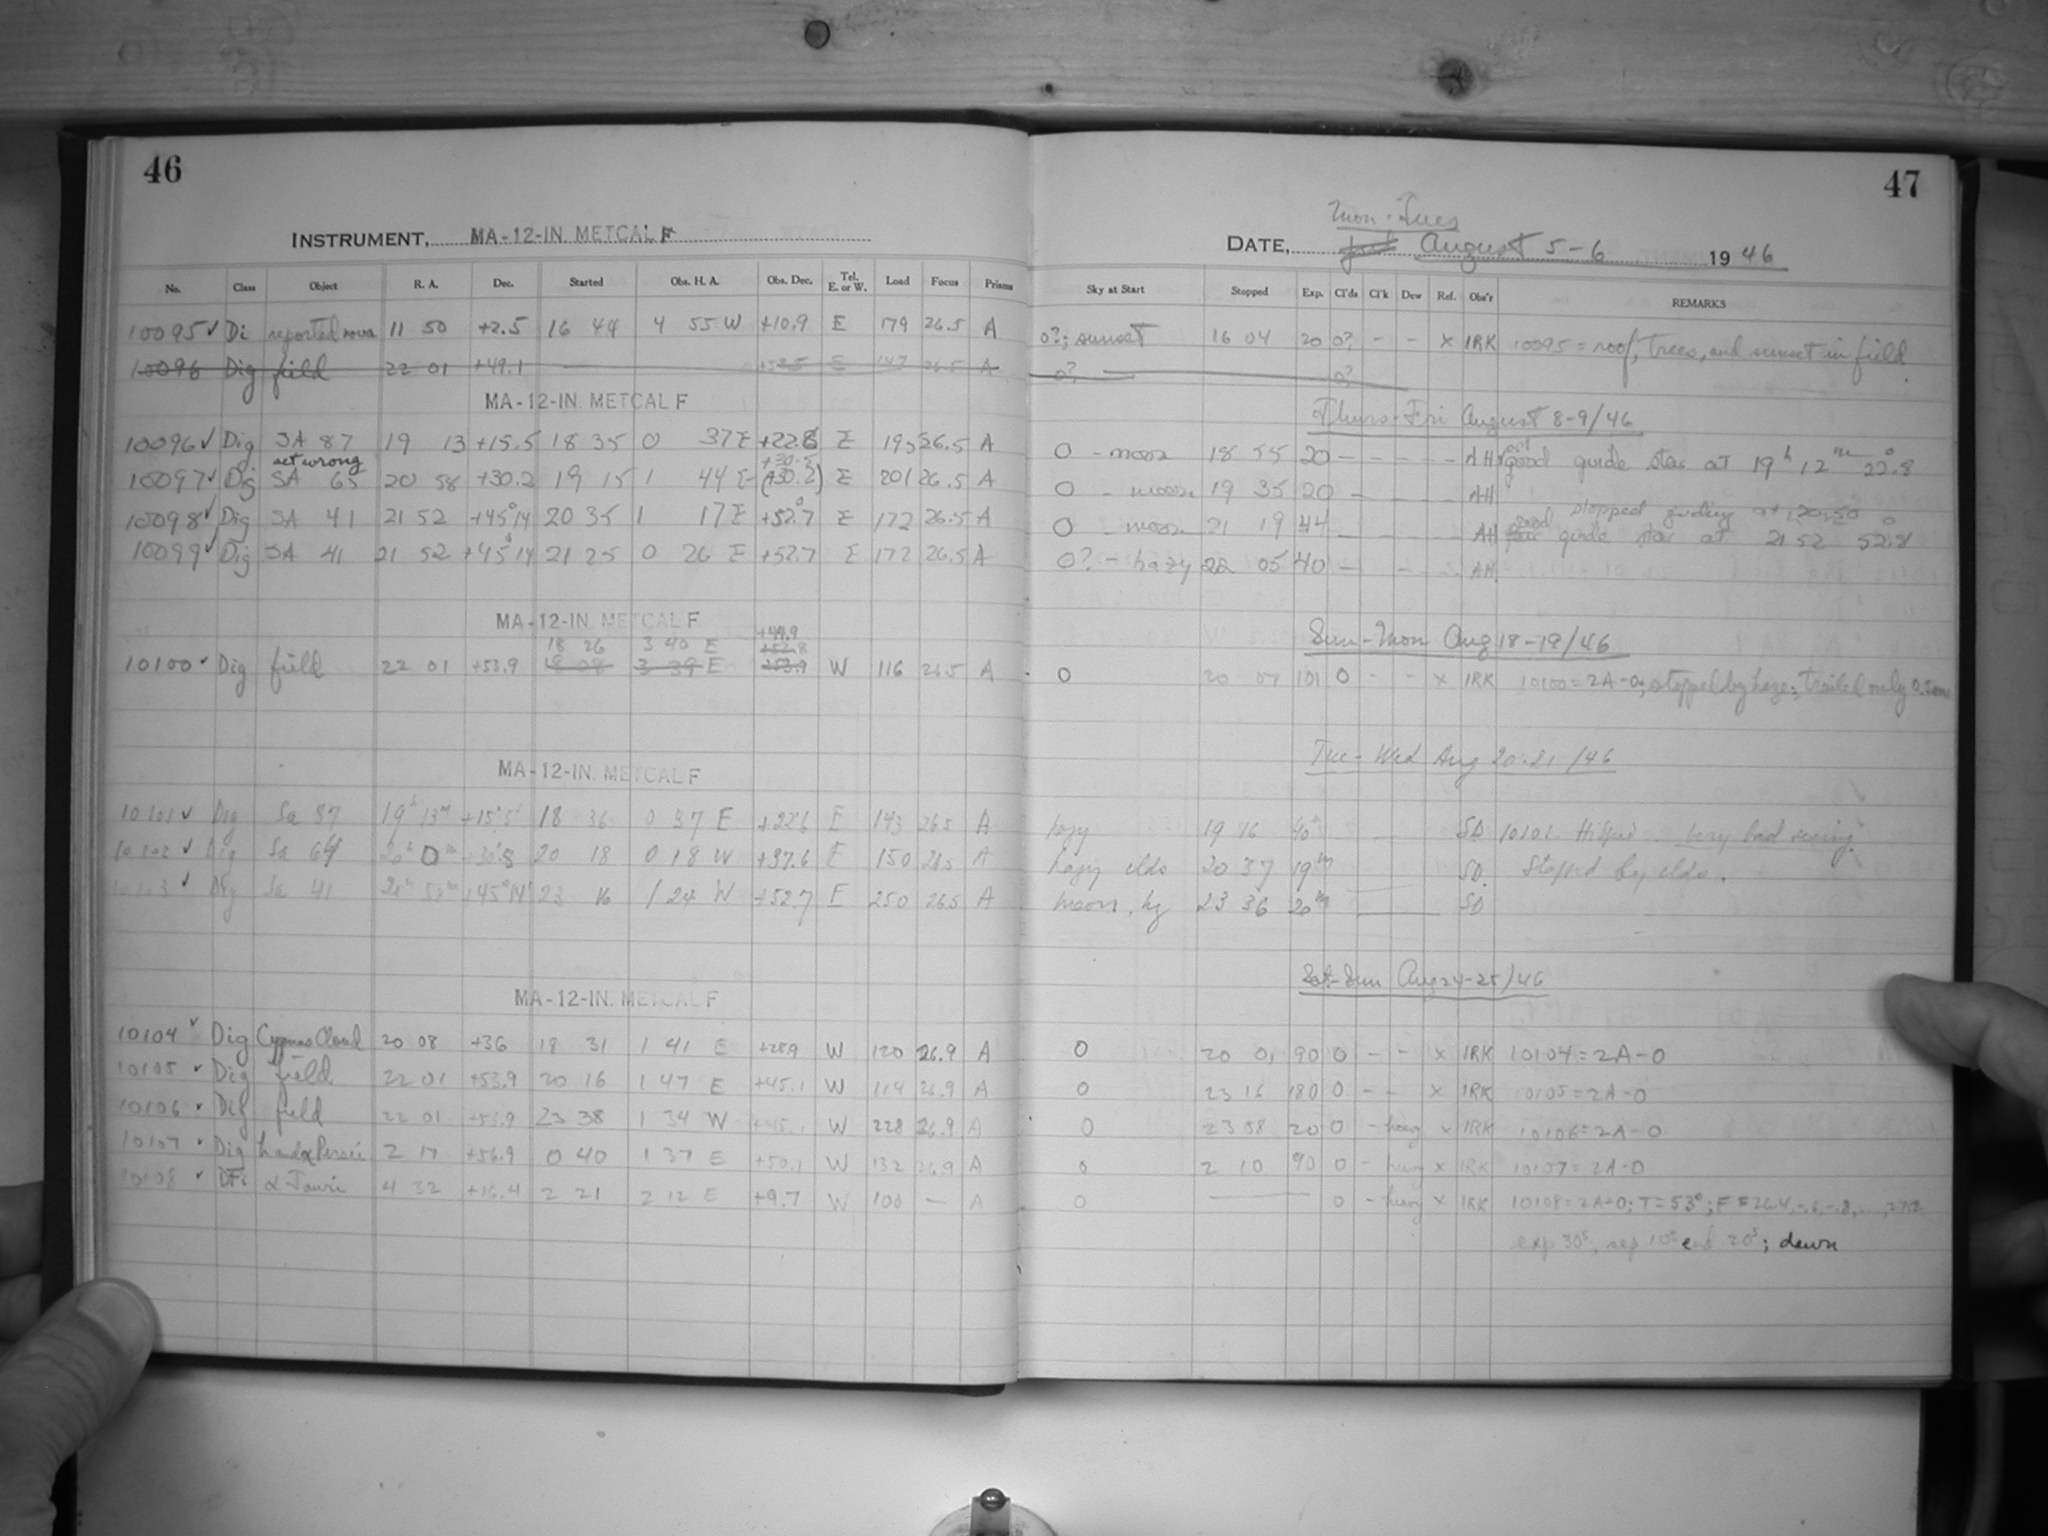 46
47
INSTRUMENT, MA-12-IN. METCALF
Mon-Tues
DATE, August 5-6 1946
No. Class Object R. A. Dec. Started Obs. H. A. Obs. Dec. Tel. E. or W. Load Focus Prisms Sky at Start Stopped Exp. Cl'ds Cl'k Dew Ref. Obs'r REMARKS
10095 ✓ Di reported nova 11 50 +2.5 16 44 4 55 W +10.9 E 179 26.5 A 0?; sunset 16 04 20 0? - - x IRK 10095 = roof, trees, and sunset in field
10096 Dig field 22 01 +49.1 E 147 26.5 A 0? 0?
MA-12-IN. METCALF Thurs-Fri August 8-9/46
10096 ✓ Dig SA 87 19 13 +15.5 18 35 0 37 E +22.8 E 195 26.5 A 0 - moon 18 55 20 - - - - AH good guide star at 19h 12m 22.8
set wrong +30.5
10097 ✓ Dig SA 65 20 58 +30.2 19 15 1 44 E (+30.2) E 201 26.5 A 0 - moon 19 35 20 - - - - AH
stopped guiding at 20:50
10098 ✓ Dig SA 41 21 52 +45°14 20 35 1 17 E +52.7 E 172 26.5 A 0 - moon 21 19 44 - - - - AH good guide star at 21 52 52.8
10099 ✓ Dig SA 41 21 52 +45°14 21 25 0 26 E +52.7 E 172 26.5 A 0? - hazy 22 05 40 - - - AH
MA-12-IN. METCALF Sun-Mon Aug 18-19/46
18 26 3 40 E +44.9
+52.8
10100 ✓ Dig field 22 01 +53.9 18 08 3 39 E +53.9 W 116 26.5 A 0 20 07 101 0 - - x IRK 10100 = 2A-0; stopped by haze; trailed only
MA-12-IN. METCALF Tue-Wed Aug 20-21/46
10101 ✓ Dig Sa 87 19h 13m +15°5' 18 36 0 37 E +22.6 E 143 26.5 A hazy 19 16 40m SD 10101 very bad seeing.
10102 ✓ Dig Sa 64 20h 0m +30.8 20 18 0 18 W +37.6 E 150 26.5 A hazy clds 20 37 19m SD. Stopped by clds.
10103 ✓ Dig Sa 41 +45°14' 23 16 1 24 W +52.7 E 250 26.5 A moon, hz 23 36 20m SD
MA-12-IN. METCALF Sat-Sun Aug 24-25/46
10104 ✓ Dig Cygnus Cloud 20 08 +36 18 31 1 41 E +28.9 W 120 26.9 A 0 20 01 90 0 - - x IRK 10104 = 2A-0
10105 ✓ Dig field 22 01 +53.9 20 16 1 47 E +45.1 W 114 26.9 A 0 23 16 180 0 - - x IRK 10105 = 2A-0
10106 ✓ Dig field 22 01 +53.9 23 38 1 34 W +45.1 W 228 26.9 A 0 23 58 20 0 - heavy x IRK 10106 = 2A-0
10107 ✓ Dig h and χ Persei 2 17 +56.9 0 40 1 37 E +50.1 W 132 26.9 A 0 2 10 90 0 - heavy x IRK 10107 = 2A-0
10108 ✓ DFi α Tauri 4 32 +16.4 2 21 2 12 E +9.7 W 100 - A 0 0 - heavy x IRK 10108 = 2A-0; T = 53°; F = 26.4, -.6, -.8, ..., 27.2
exp 30s, sep 10s end 20s; dawn